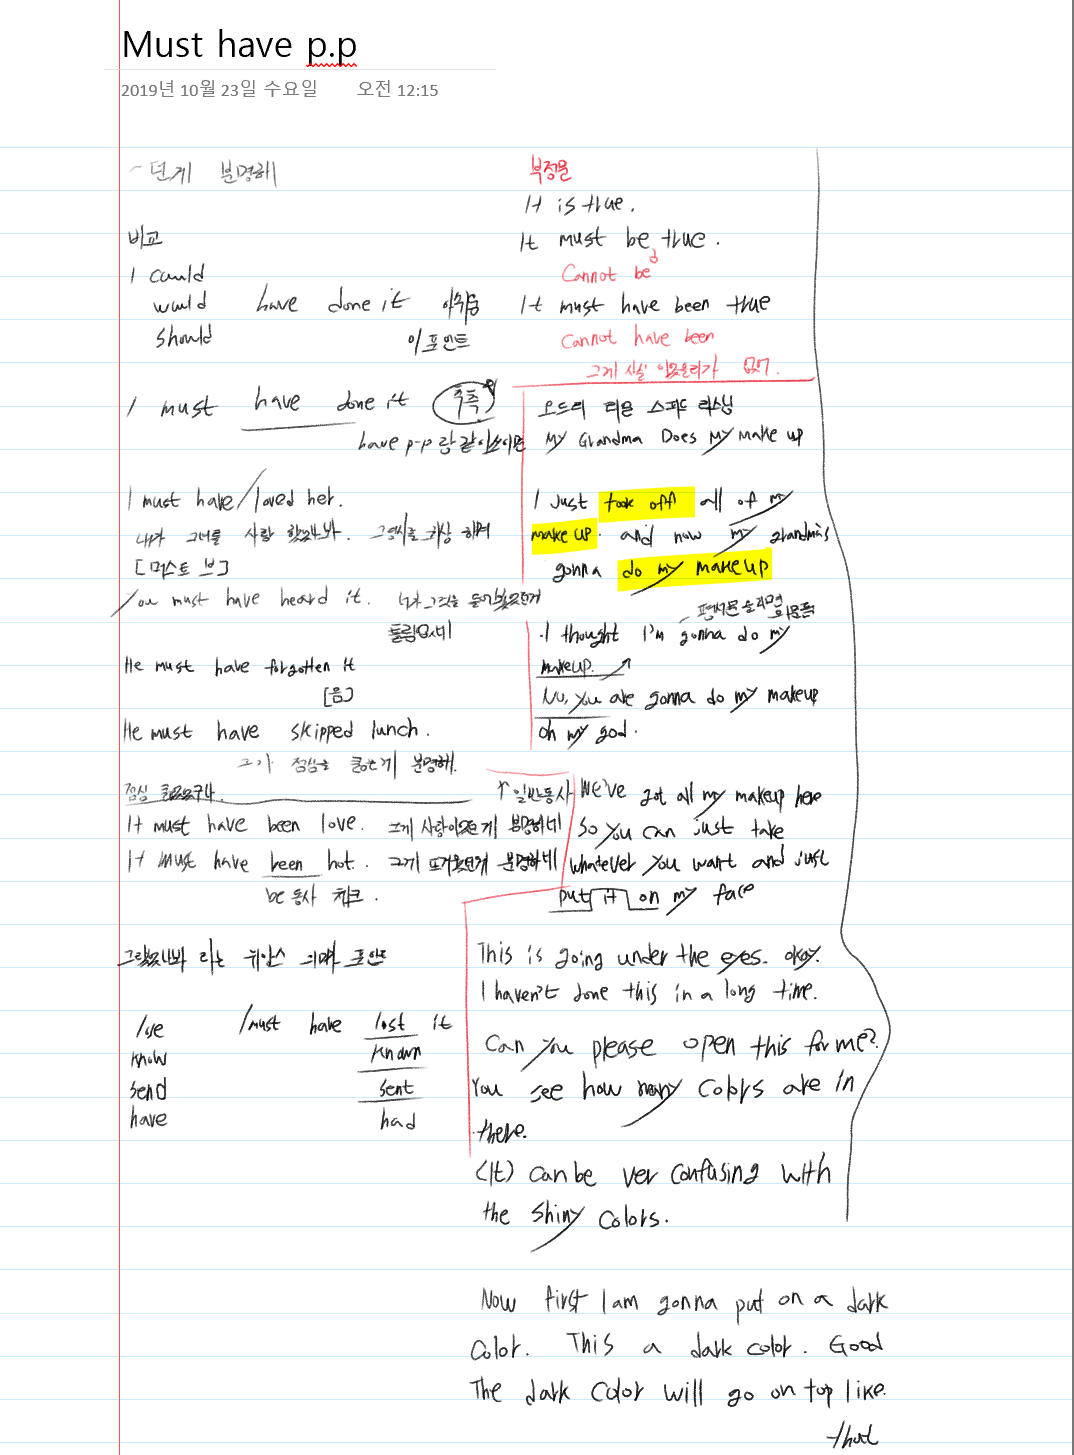 Must have p.p
2019년 10월 23일 수요일 오전 12:15
~던게 분명해
비교
I could
would have done it 아쉬움
should 이 포인트
I must have done it 추측
have p.p 랑 같이쓰이면
I must have/loved her.
내가 그녀를 사랑 했었나봐.
[머스트 브]
You must have heard it.
틀림없네
He must have forgotten it
[음]
He must have skipped lunch.
그가 점심을 굶은게 분명해.
점심 굶었구나. ↑일반동사
It must have been love. 그게 사랑이었던게 분명하네
It must have been hot. 그게 뜨거웠던게 분명하네
be 동사 체크.
그랬었나봐 라는 뉘앙스 의미 포인트
lose I must have lost it
know known
send sent
have had
부정문
It is true.
It must be true.
Cannot be
It must have been true
Cannot have been
그게 사실 이었을리가 없지.
오드리 타운 스피드 리스닝
My Grandma Does My make up
I just took off all of my
make up. and now my grandma's
gonna do my makeup
평서문 올리면 의문문
I thought I'm gonna do my
makeup.
No, you are gonna do my makeup
oh my god.
We've got all my makeup here
So you can just take
whatever you want and just
put it on my face
This is going under the eyes. okay.
I haven't done this in a long time.
Can you please open this for me?
You see how many colors are in
there.
(It) can be ver confusing with
the shiny colors.
Now first I am gonna put on a dark
color. This a dark color. Good
The dark color will go on top like.
that